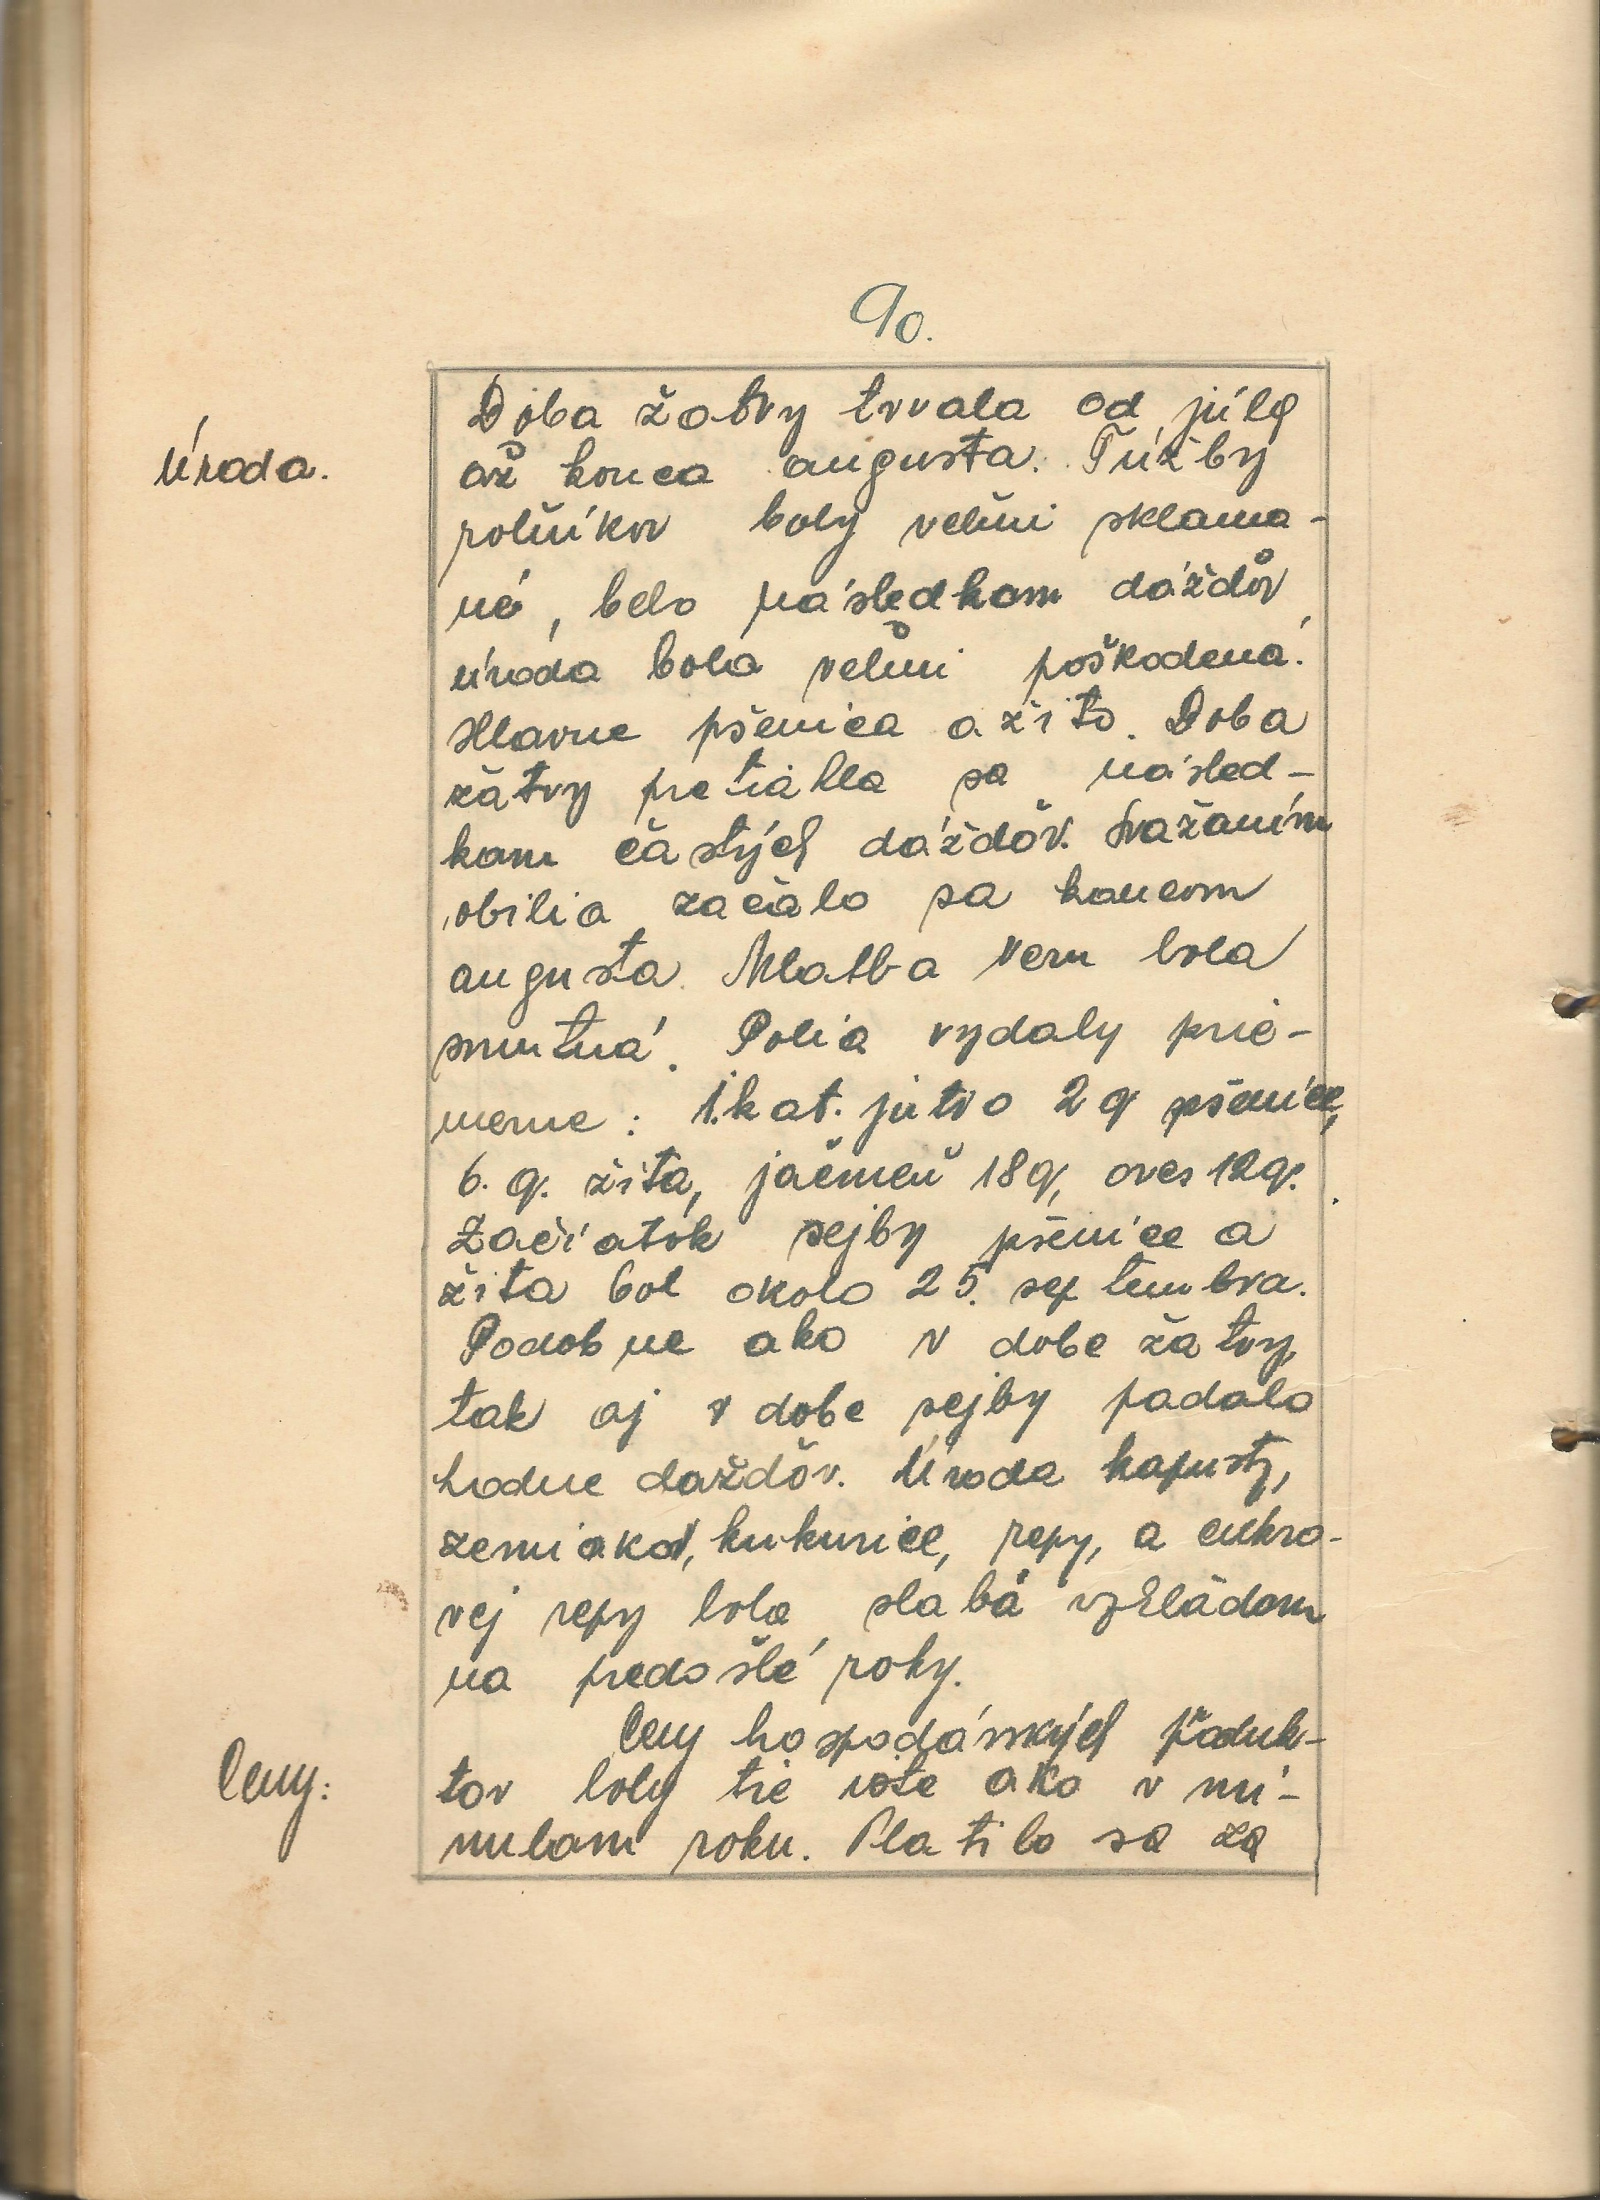 90.
Úroda.
Doba žatvy trvala od júla
až konca augusta. Túžby
rolníkov boly veľmi sklama-
né, lebo následkom dážďov
úroda bola veľmi poškodená.
Hlavne pšenica a žito. Doba
žatvy pretiahla sa násled-
kom častých dážďov. Svážaním
obilia začalo sa koncom
augusta. Mlatba vem bola
smutná. Polia vydaly prie-
merne: 1.kat. jutro 2q pšenice,
6. q. žita, jačmeň 18q, oves 12q.
Začiatok sejby pšenice a
žita bol okolo 25. septembra.
Podobne ako v dobe žatvy,
tak aj v dobe sejby padalo
hodne dažďov. Úroda kapusty,
zemiakov, kukurice, repy, a cukro-
vej repy bola slabá vzhľadom
na predošlé roky.
Ceny:
Ceny hospodárskych produk-
tov boly tie iste ako v mi-
nulom roku. Platilo sa za